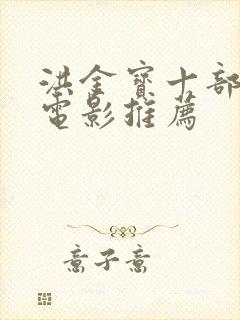 洪金寶十部
電影推薦
意子意